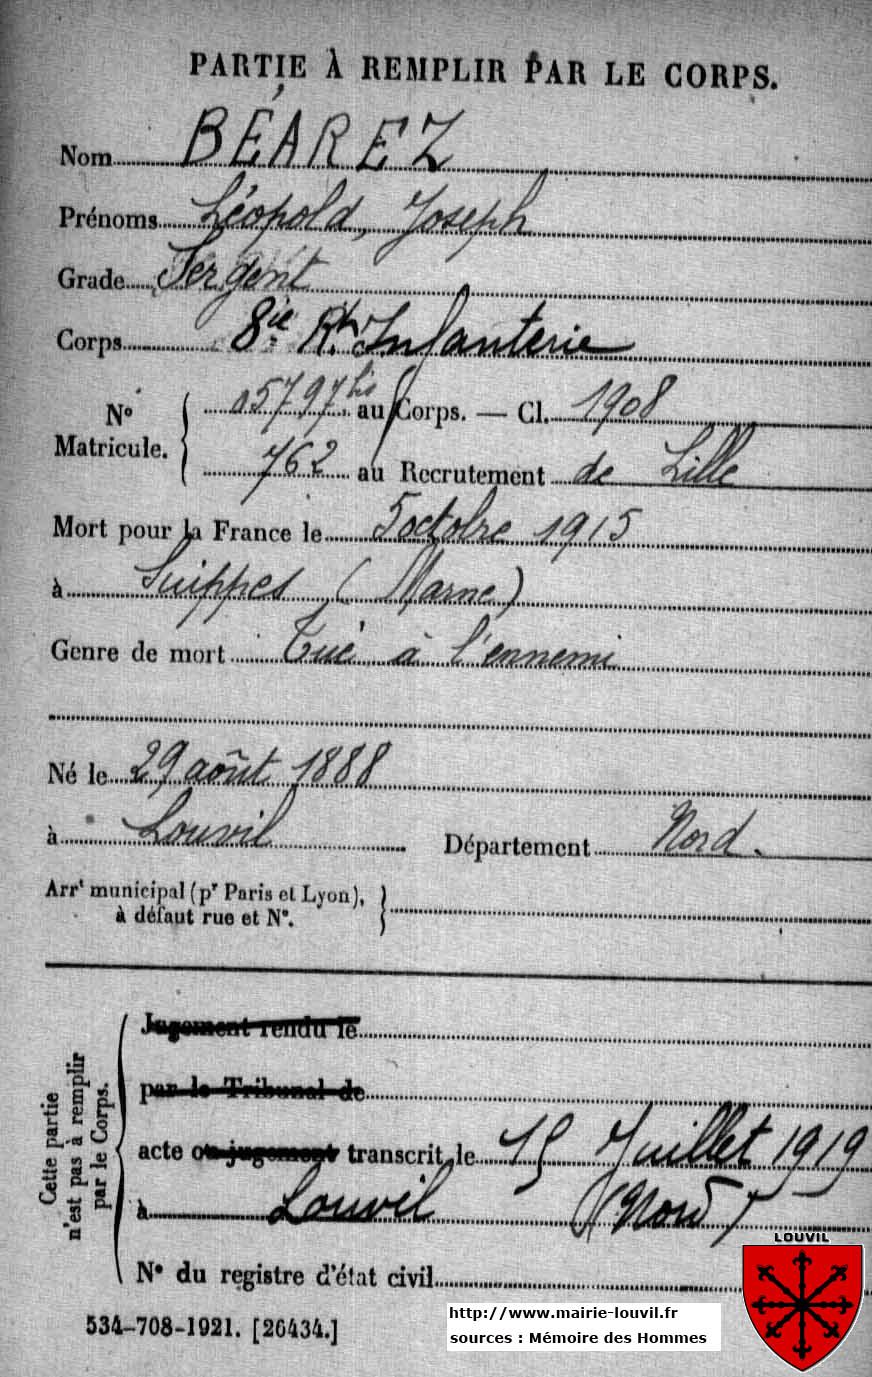 PARTIE À REMPLIR PAR LE CORPS.
Nom BÉAREZ
Prénoms Léopold, Joseph
Grade Sergent
Corps 8ie Rt Infanterie
N° Matricule. { 05797bis au Corps. — Cl. 1908
762 au Recrutement de Lille
Mort pour la France le 5 octobre 1915
à Suippes (Marne)
Genre de mort Tué à l'ennemi
Né le 29 août 1888
à Louvil Département Nord.
Arrt municipal (pr Paris et Lyon),
à défaut rue et N°.
Cette partie
n'est pas à remplir
par le Corps.
Jugement rendu le
par le Tribunal de
acte ou jugement transcrit le 15 Juillet 1919
à Louvil (Nord)
N° du registre d'état civil
534-708-1921. [26434.]
LOUVIL
http://www.mairie-louvil.fr
sources : Mémoire des Hommes